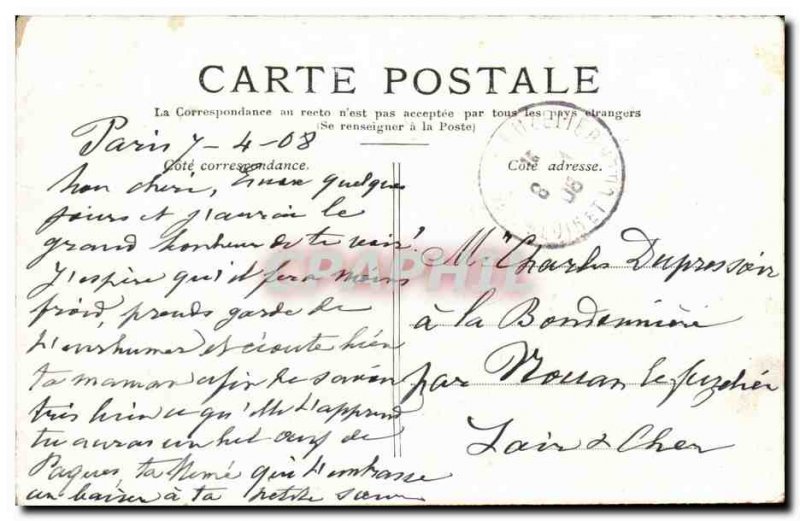 CARTE POSTALE
La Correspondance au recto n'est pas acceptée par tous les pays étrangers
(Se renseigner à la Poste)
Paris 7-4-08
Côté correspondance.
Mon chéri, Encore quelques
jours et j'aurai le
grand bonheur de te voir!
J'espère qu'il fera moins
froid, prends garde de
t'enrhumer et écoute bien
ta maman afin de savoir
très bien ce qu'elle t'apprend
tu auras un bel œuf de
Paques, ta Mémé qui t'embrasse
un baiser à ta petite sœur
Côté adresse.
Mr Charles Dupressoir
à la Bondonnière
par Nouan le fuzelier
Loir & Cher
LOIR ET CHER
08
CPAPHIL